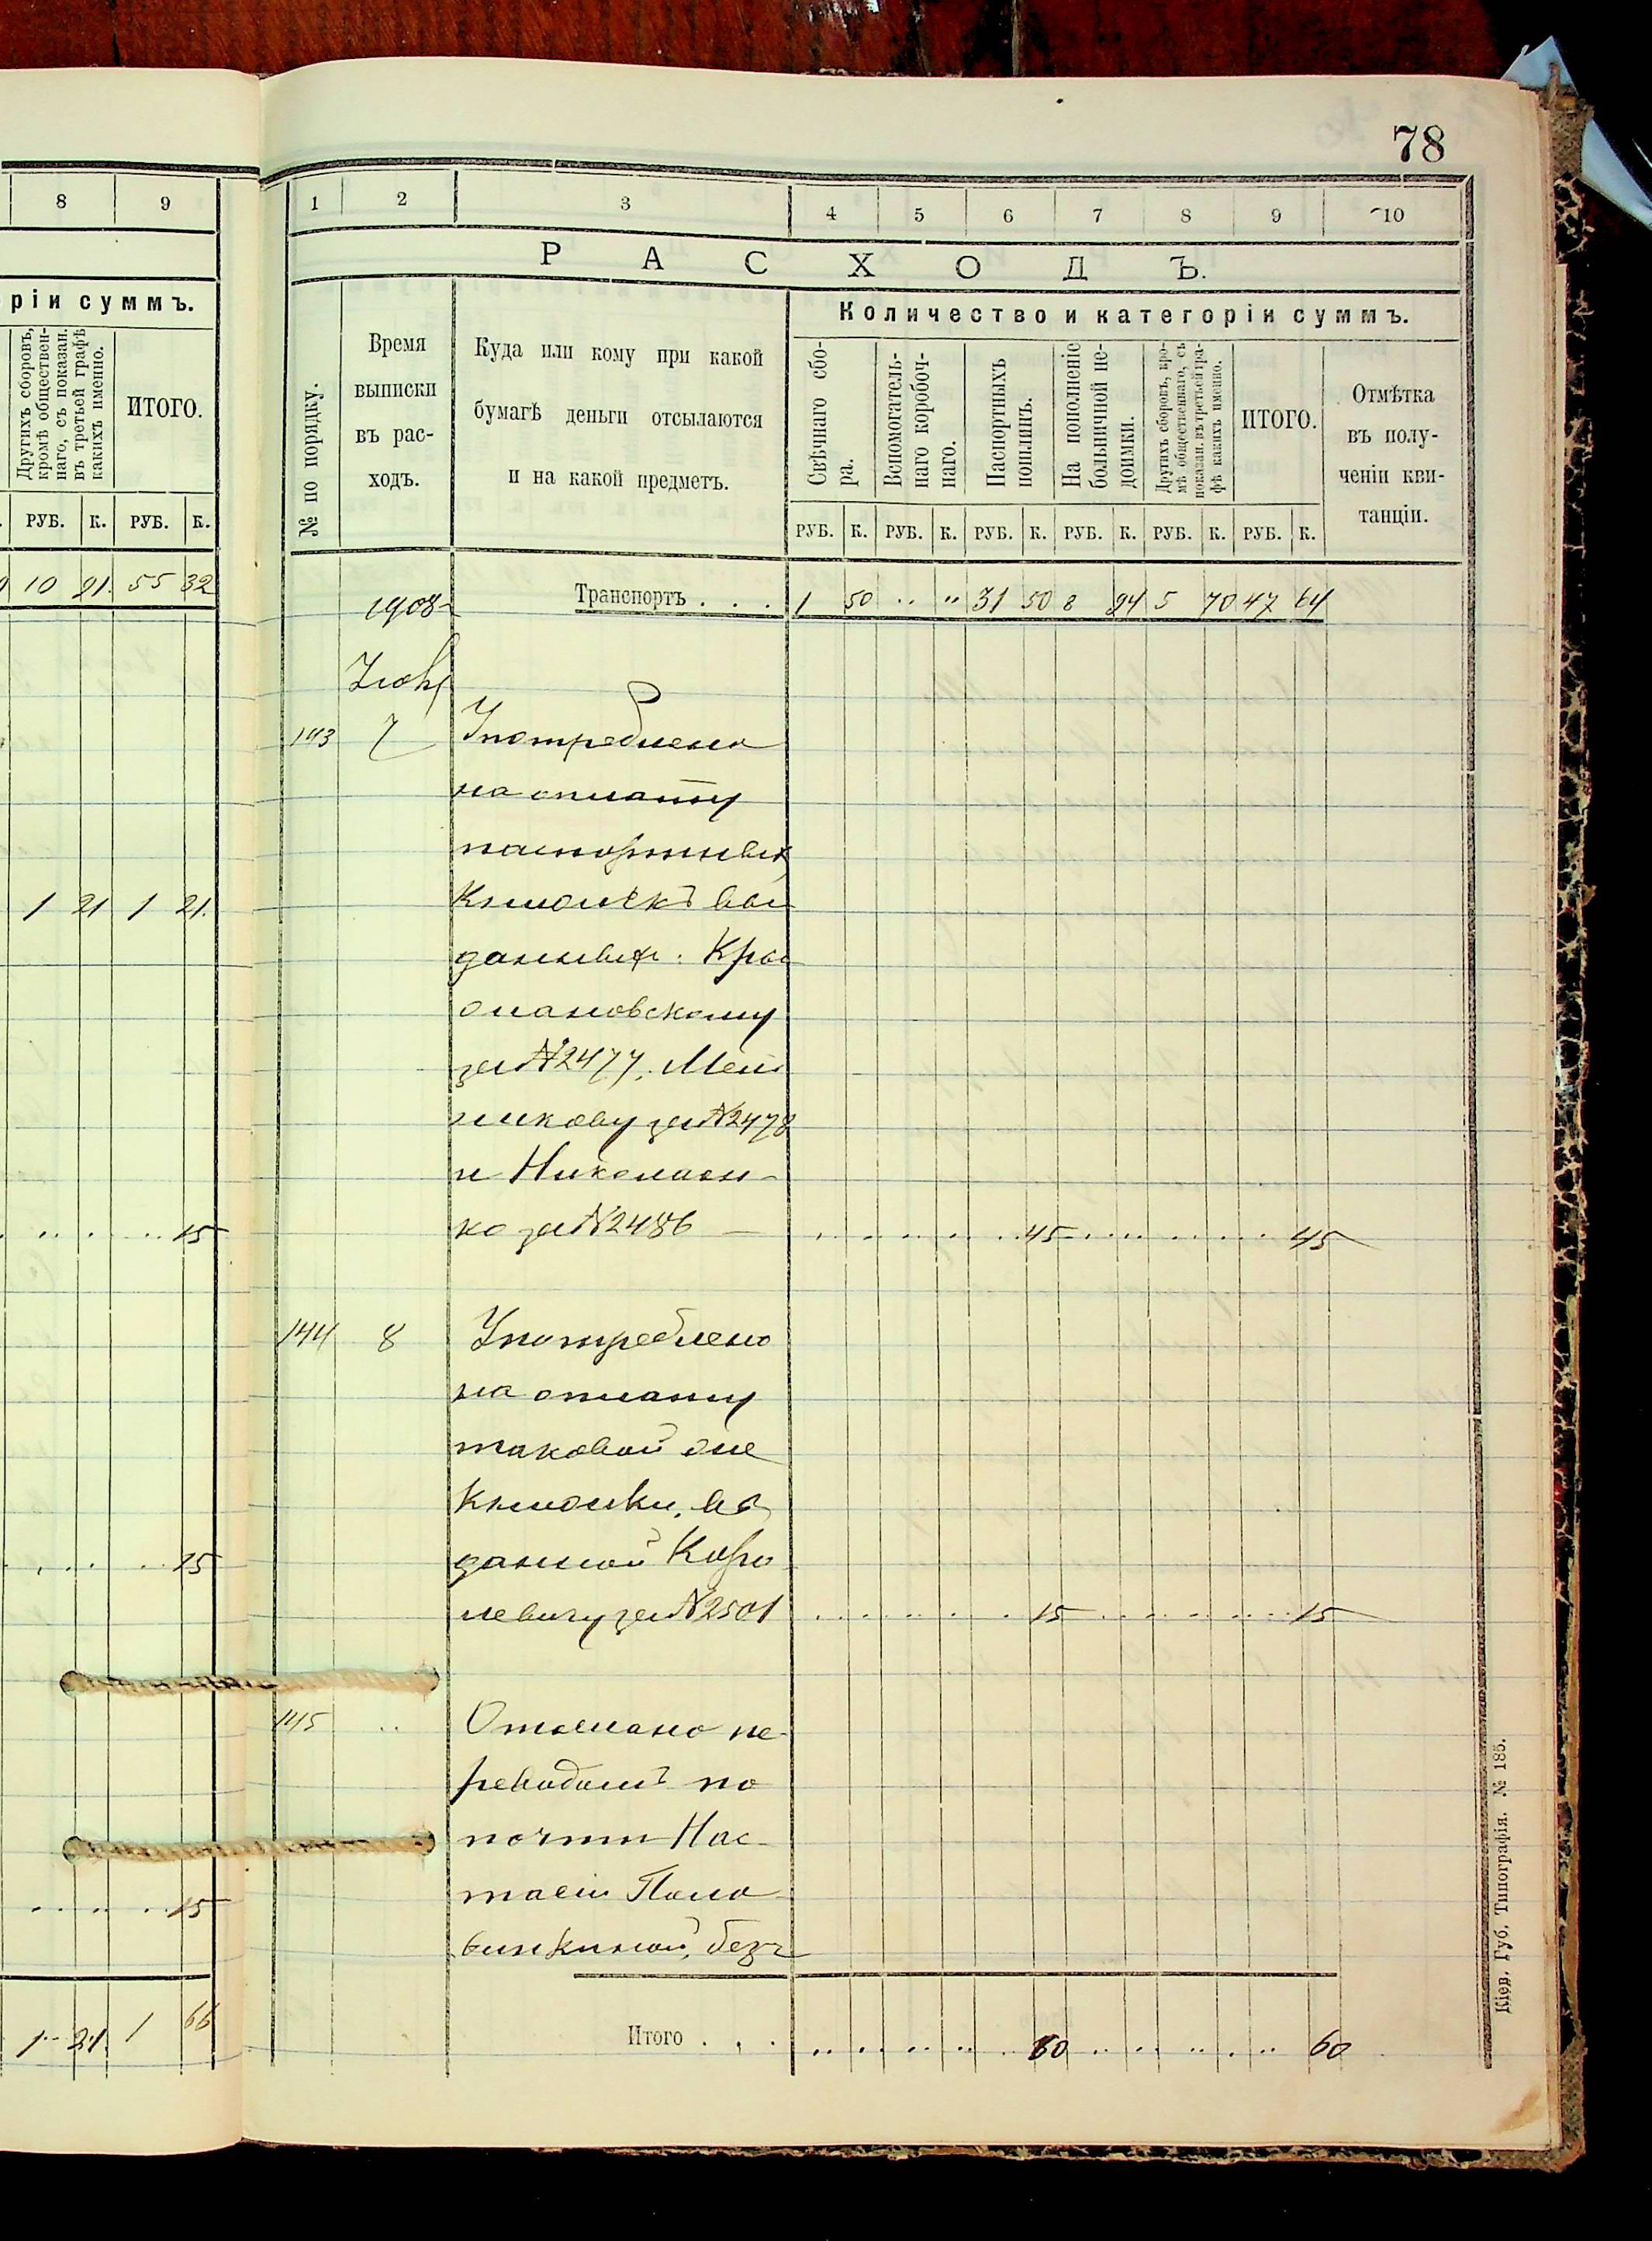 78
8 9
ріи суммъ.
Другихъ сборовъ,
кромѣ обществен-
наго, съ показан.
въ третьей графѣ
какихъ именно.
ИТОГО.
РУБ. К. РУБ. К.
10 21 55 32
1 21 1 21
15
15
15
1 21 1 66
1 2 3 4 5 6 7 8 9 10
РАСХОДЪ.
№ по порядку.
Время
выписки
въ рас-
ходъ.
Куда или кому при какой
бумагѣ деньги отсылаются
и на какой предметъ.
Количество и категоріи суммъ.
Свѣчнаго сбо-
ра.
Вспомогатель-
наго коробоч-
наго.
Паспортныхъ
пошлинъ.
На пополненіе
больничной не-
доимки.
Другихъ сборовъ, кро-
мѣ общественнаго, съ
показан. въ третьей гра-
фѣ какихъ именно.
ИТОГО.
Отмѣтка
въ полу-
ченіи кви-
танціи.
РУБ. К. РУБ. К. РУБ. К. РУБ. К. РУБ. К. РУБ. К.
1908 Транспортъ . . . 1 50 " " 31 50 8 24 5 70 47 64
143 7 Употреблено
на оплату
паспортныхъ
книжекъ вы
данныхъ:
за №2477, Мель
никову за №2478
и Николаен-
ко за №2486 — 45 45
144 8 Употреблено
на оплату
таковой же
книжки, вы
данной Коро
левичу за №2501 15 15
145 " Отослано пе-
реводомъ по
почтѣ Нас-
тасіи
Итого . . . 60 60
Кіев. Губ. Типографія. № 185.